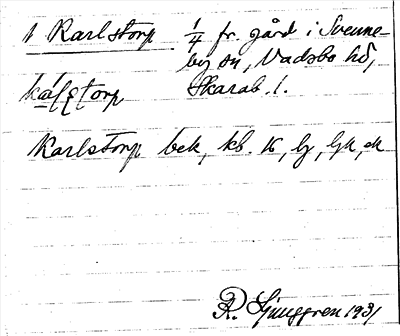 1 Karlstorp 1/4 fr. gård i Svenne-
by sn, Vadsbo hd,
Skarab. l.
Karlstorp bek, kb. K, lj,
R. Ljunggren 1931